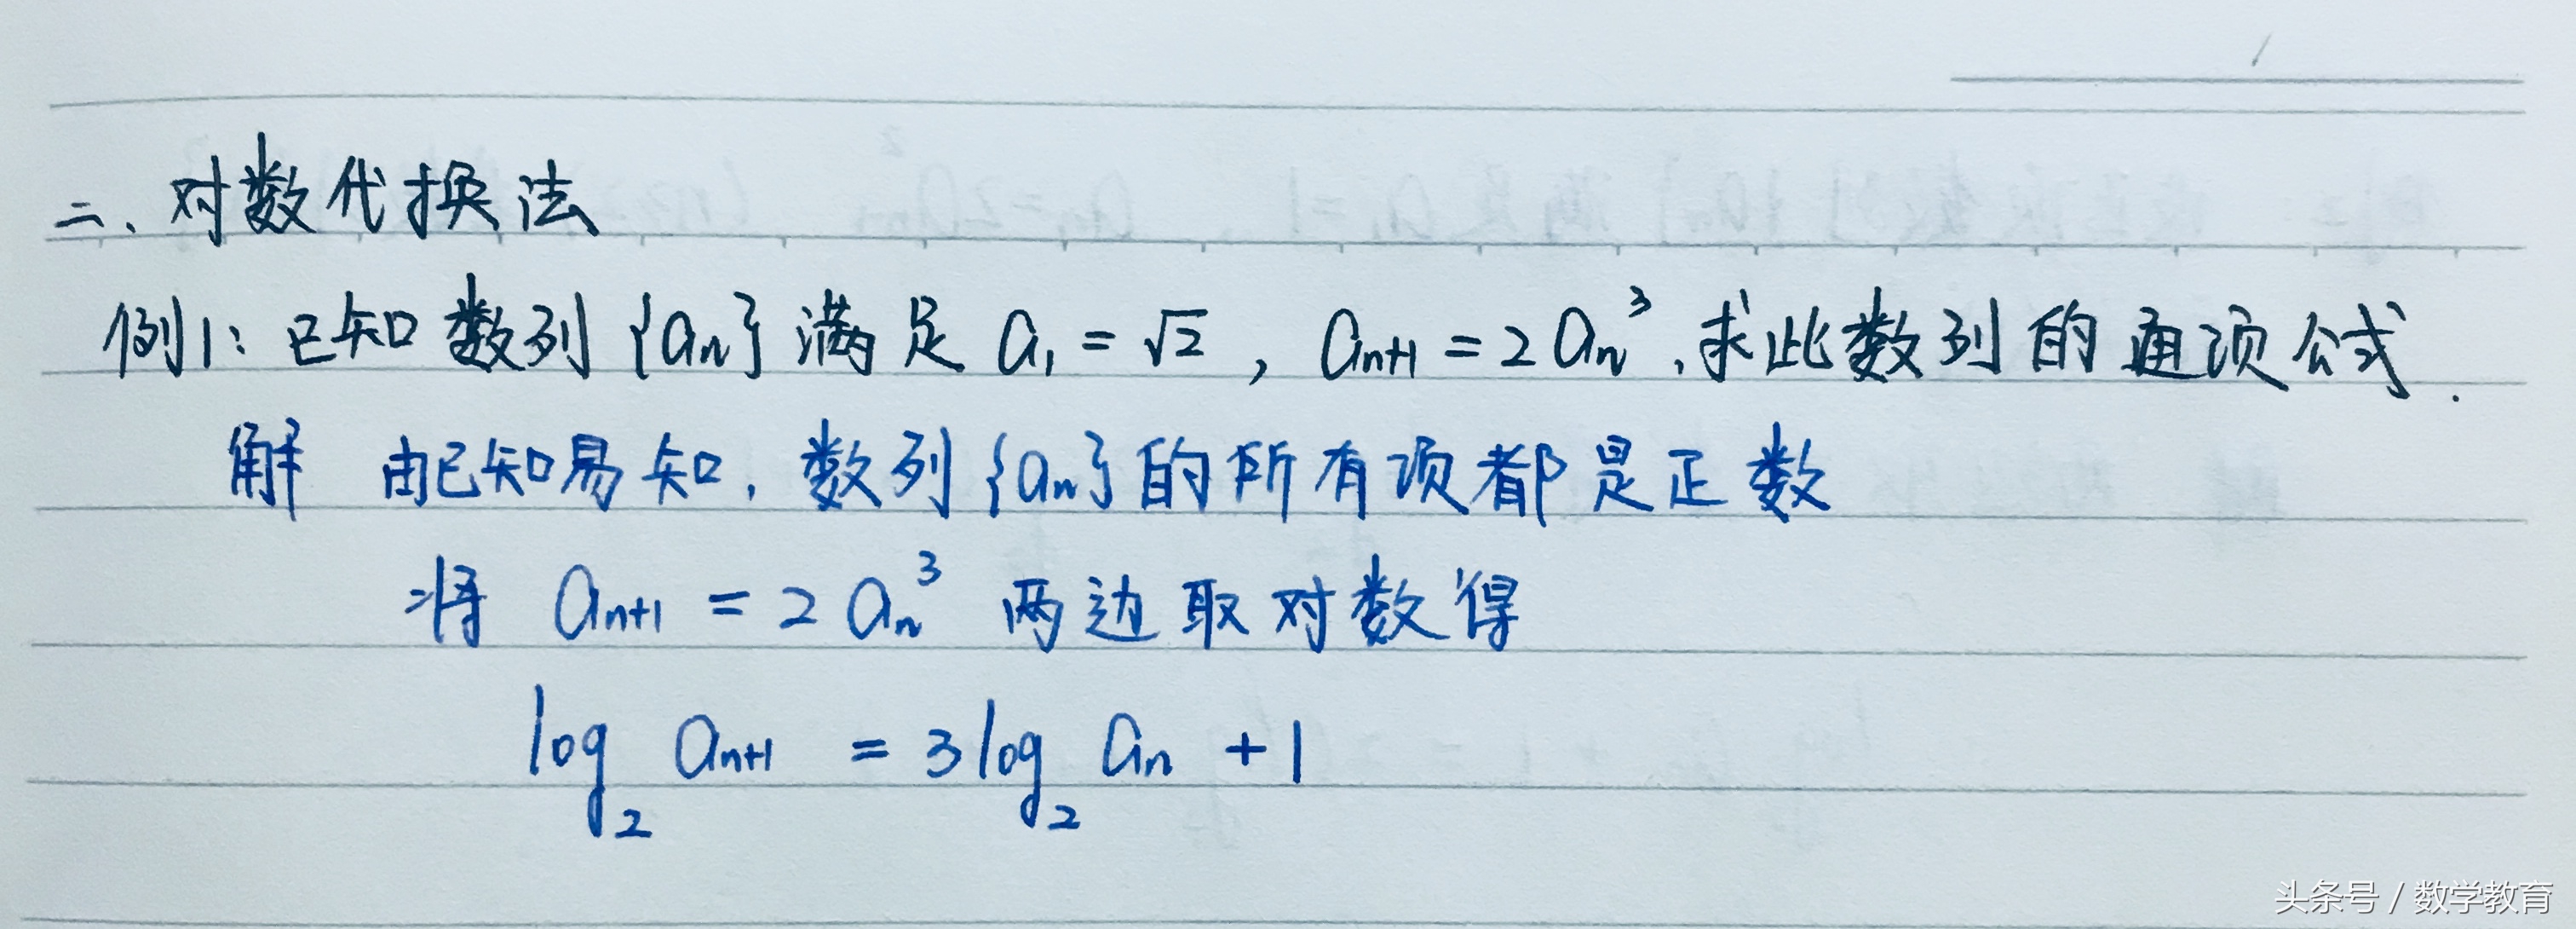 二、对数代换法
例1: 已知数列{aₙ}满足 a₁=√2, aₙ₊₁=2aₙ³,求此数列的通项公式.
解 由已知易知,数列{aₙ}的所有项都是正数
将 aₙ₊₁=2aₙ³ 两边取对数得
log₂ aₙ₊₁ = 3log₂ aₙ +1
头条号 / 数学教育